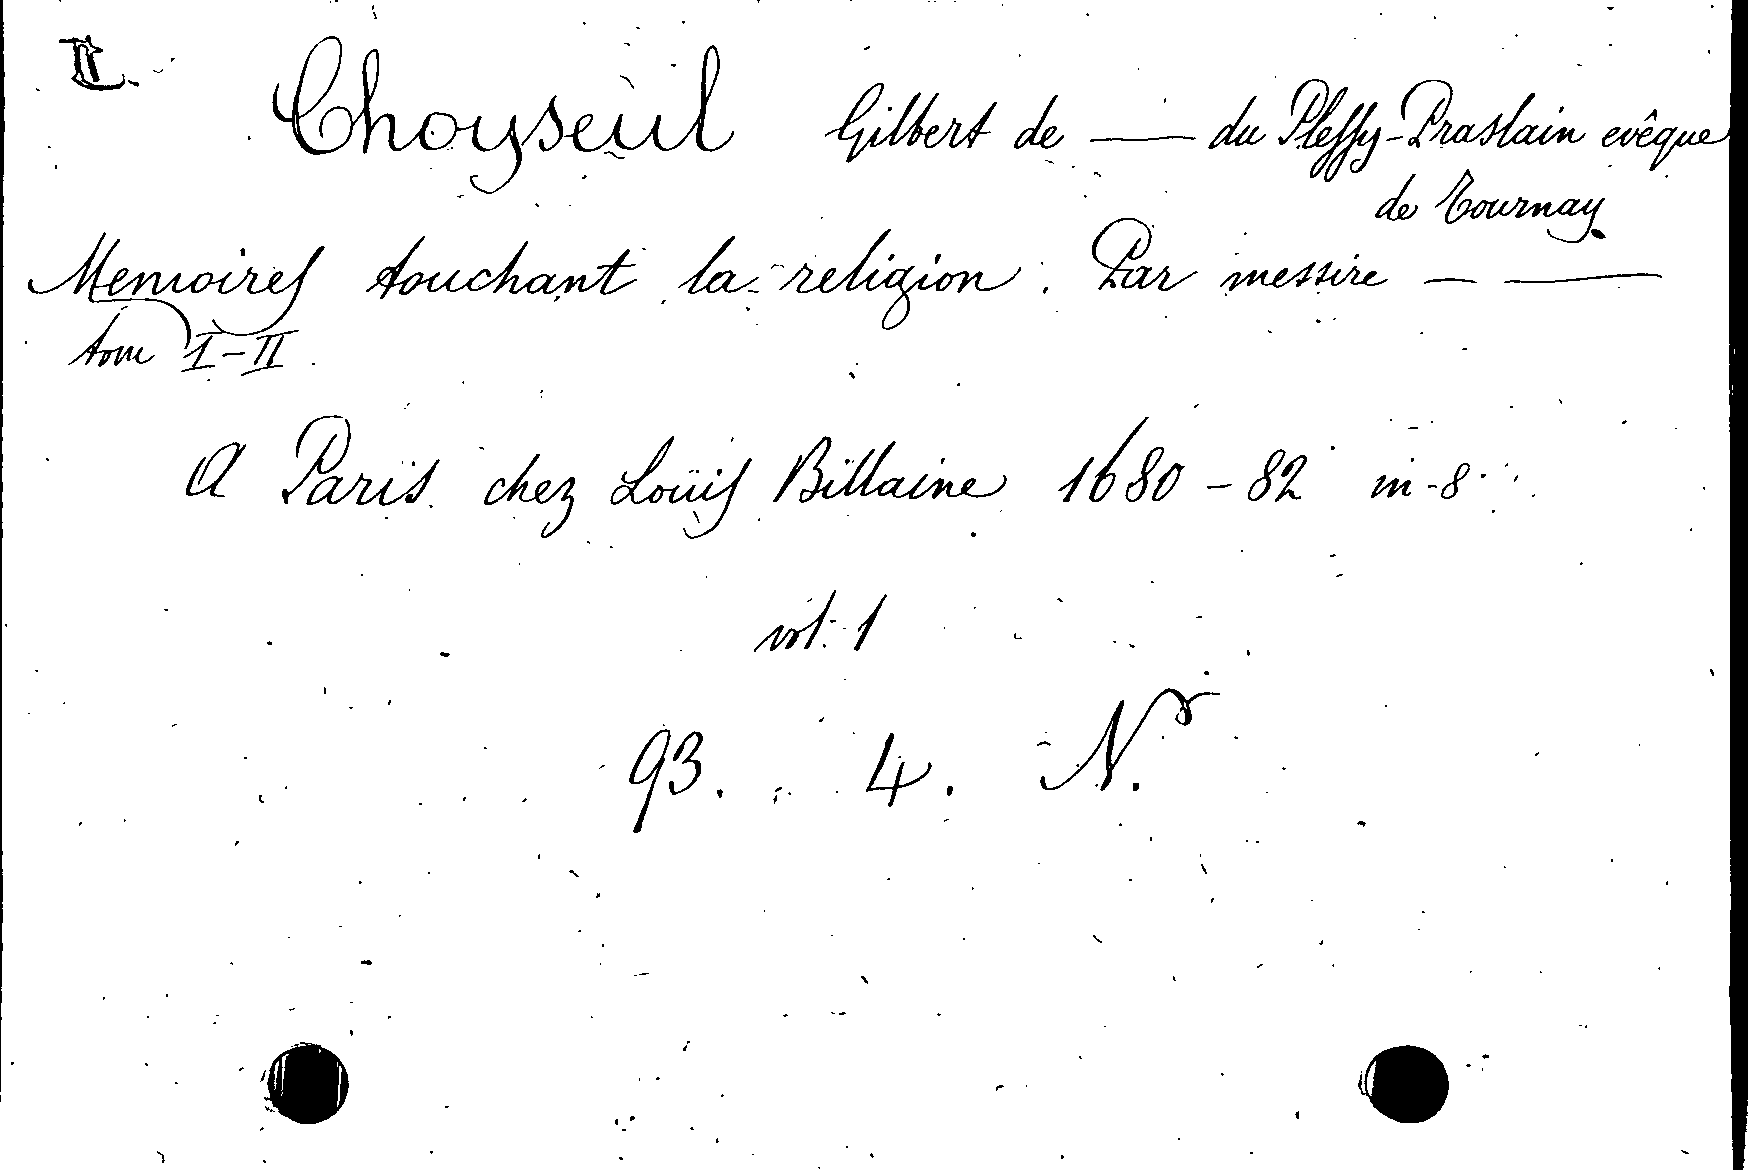 C.
Choyseul Gilbert de — du Plessy-Praslain evêque
de Tournay.
Memoires touchant la religion. Par messire — —
tom I-II
A Paris chez Loüis Billaine 1680-82 in-8
vol. 1
93. 4. N.